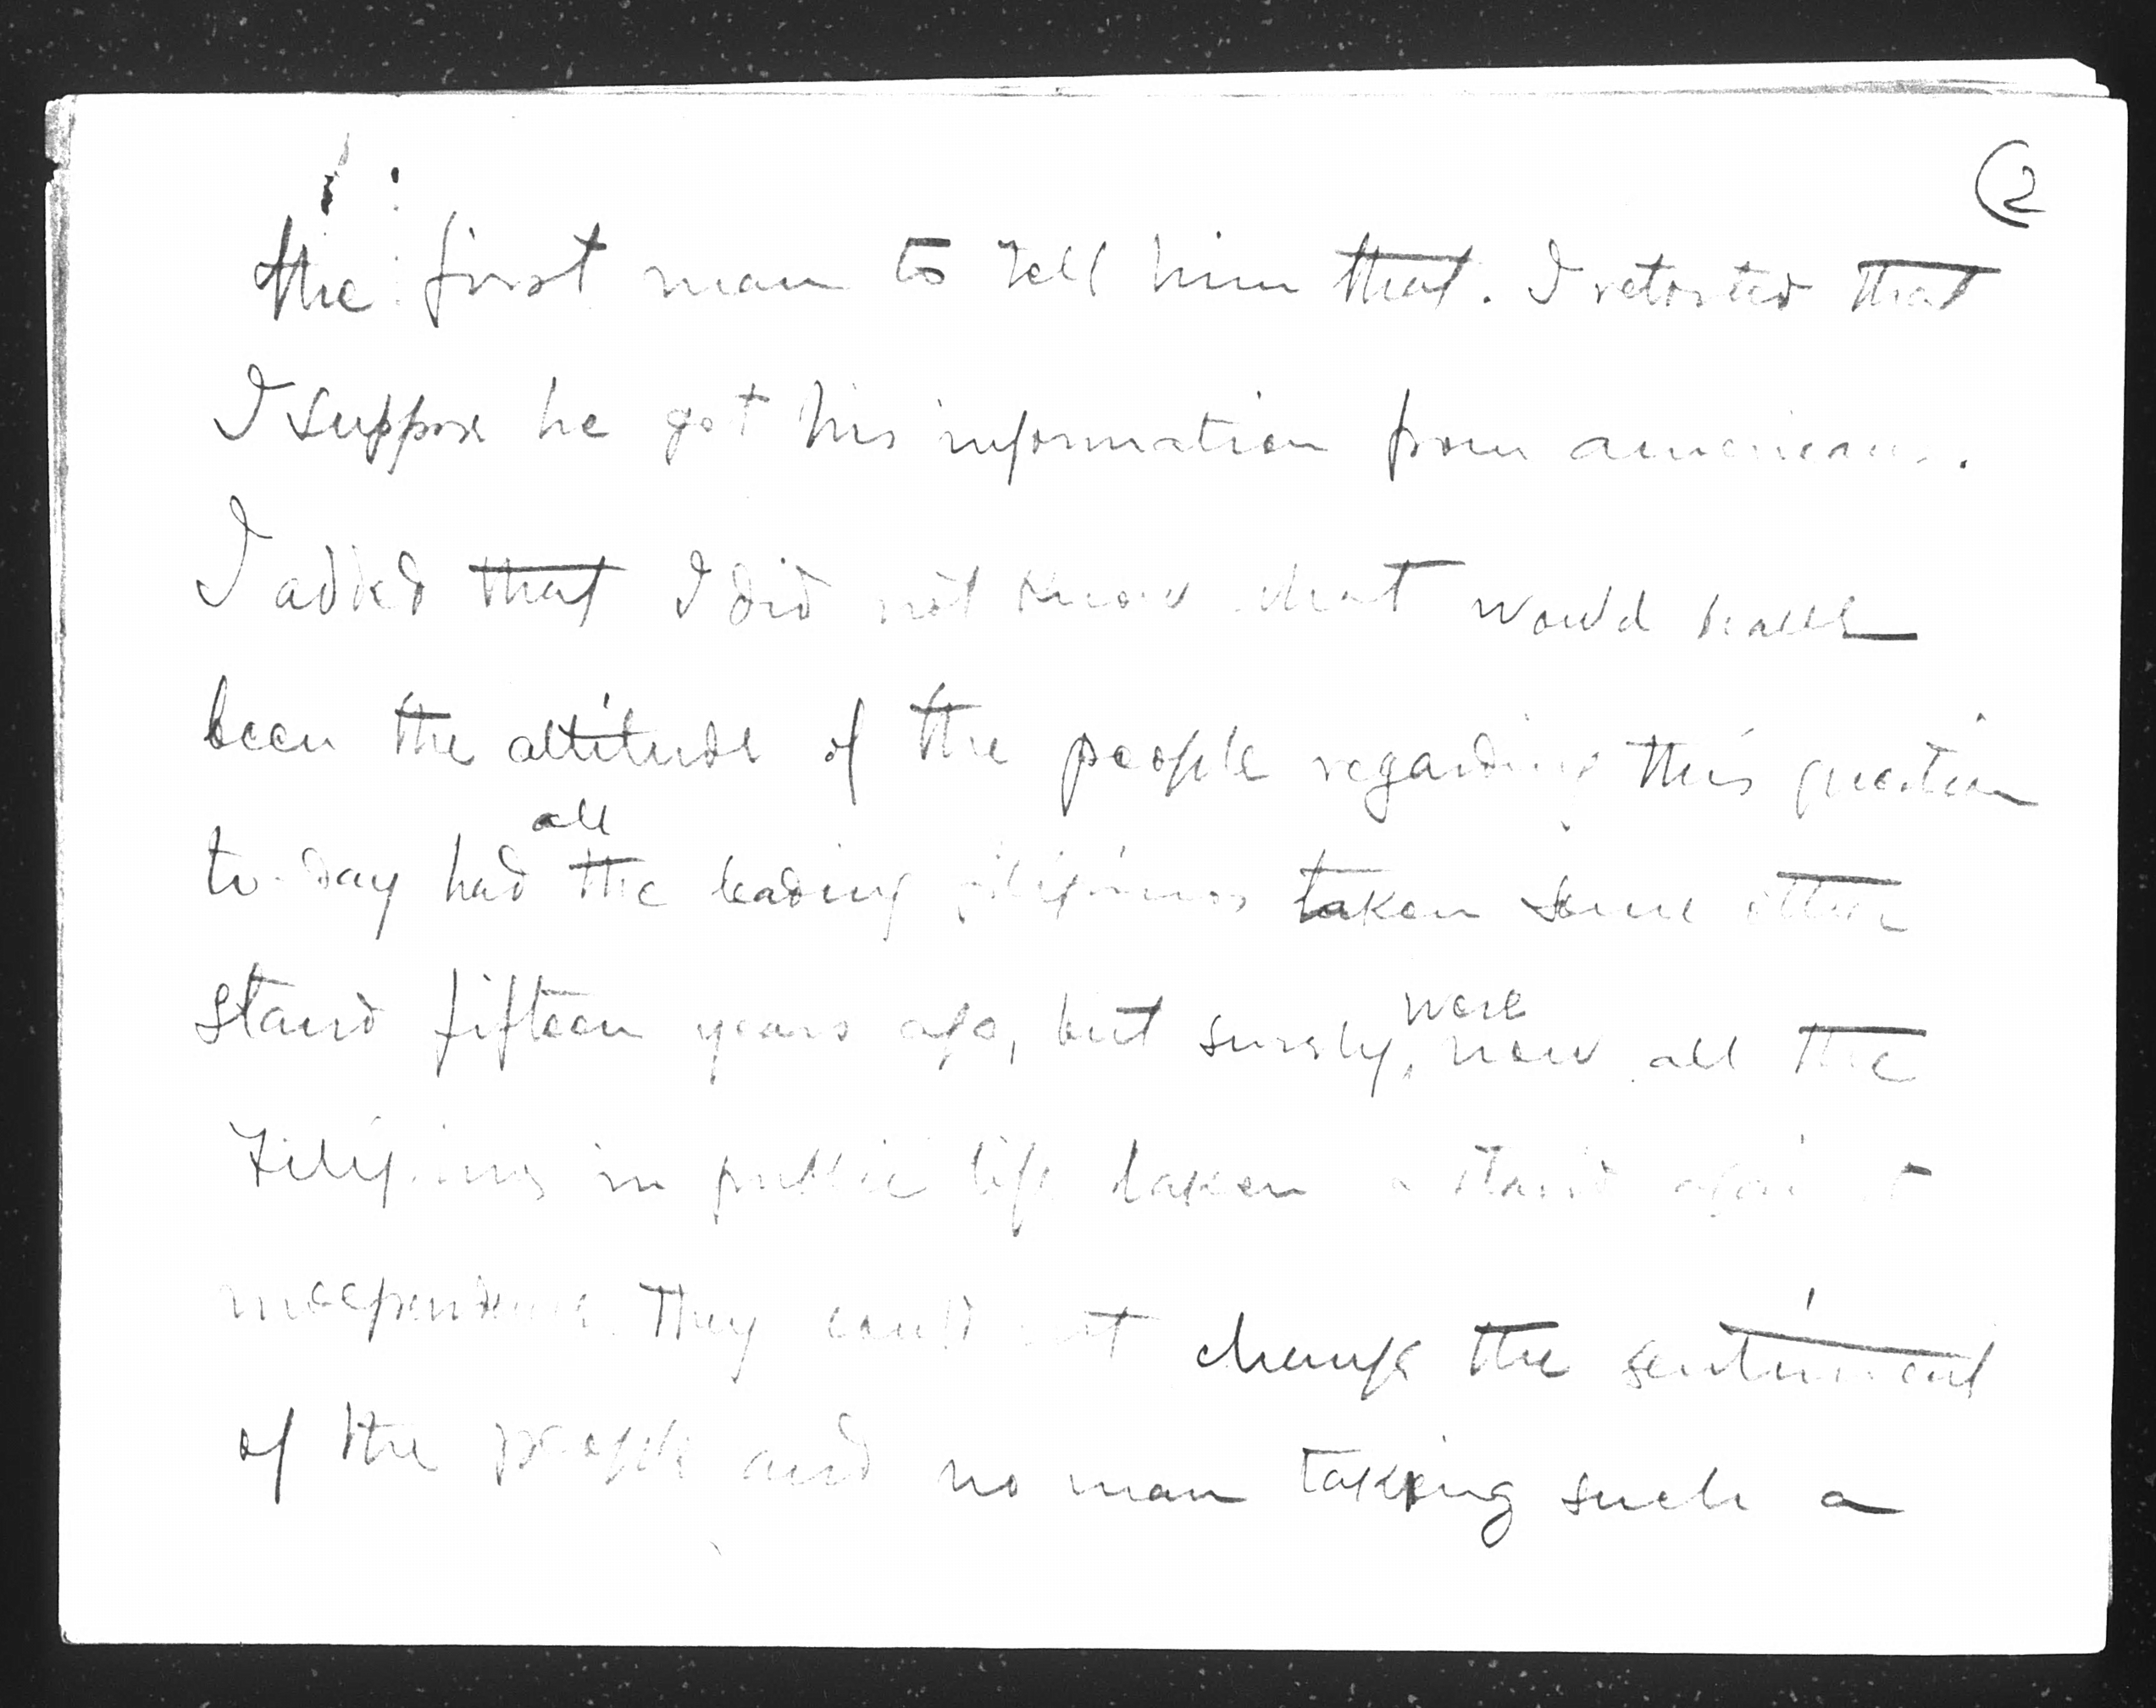 2
the first man to tell him that. I retorted that
I suppose he got his information from americans.
I added that I did not know what would have
been the attitude of the people regarding this question
all
to-day had the leading filipinos taken some other
were
stand fifteen years ago, but surely, now all the
Filipinos in public life taken a stand against
independence. They could not change the sentiment
of the people and no man taking such a